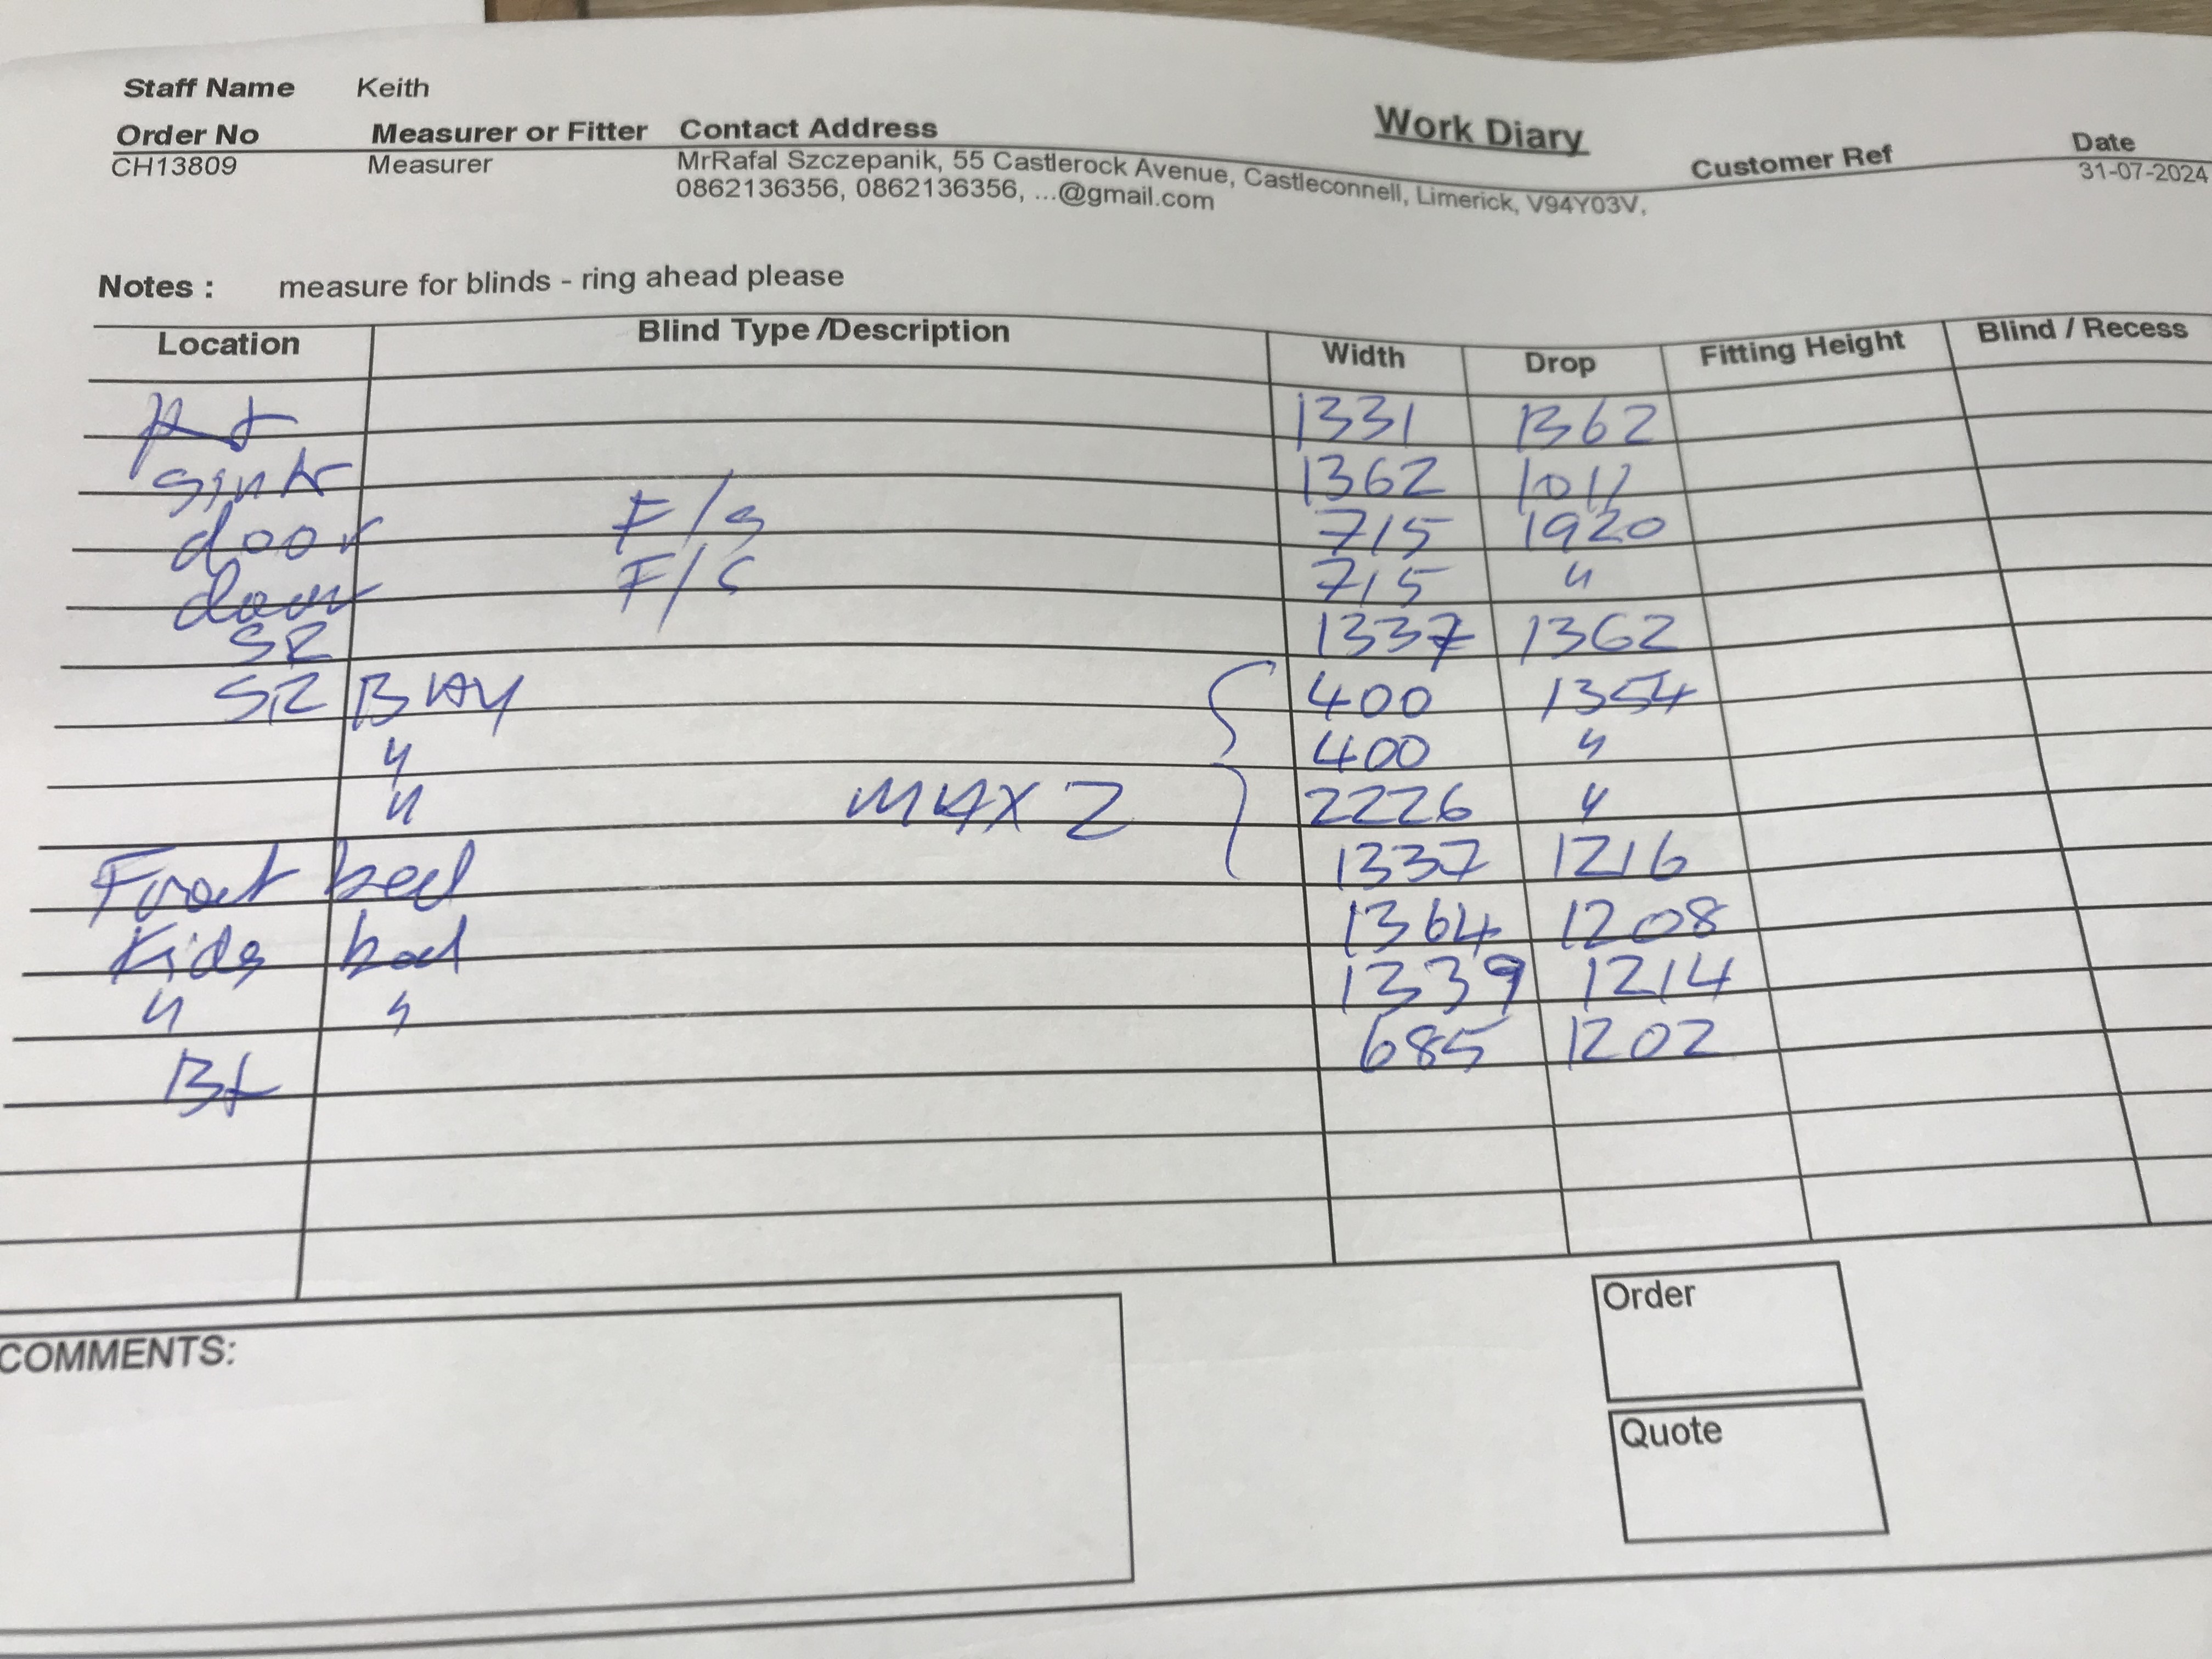 Staff Name Keith
Work Diary
Order No Measurer or Fitter Contact Address Customer Ref Date
CH13809 Measurer MrRafal Szczepanik, 55 Castlerock Avenue, Castleconnell, Limerick, V94Y03V, 31-07-2024
0862136356, 0862136356, ...@gmail.com
Notes : measure for blinds - ring ahead please
Location Blind Type /Description Width Drop Fitting Height Blind / Recess
1331 1362
sink 1362 1011
door F/s 715 1920
door F/s 715 "
SR 1337 1362
SR BAY 400 1354
" 400 "
" MAX 2 2226 "
Front bed 1337 1216
Kids bed 1364 1208
" " 1339 1214
685 1202
COMMENTS:
Order
Quote